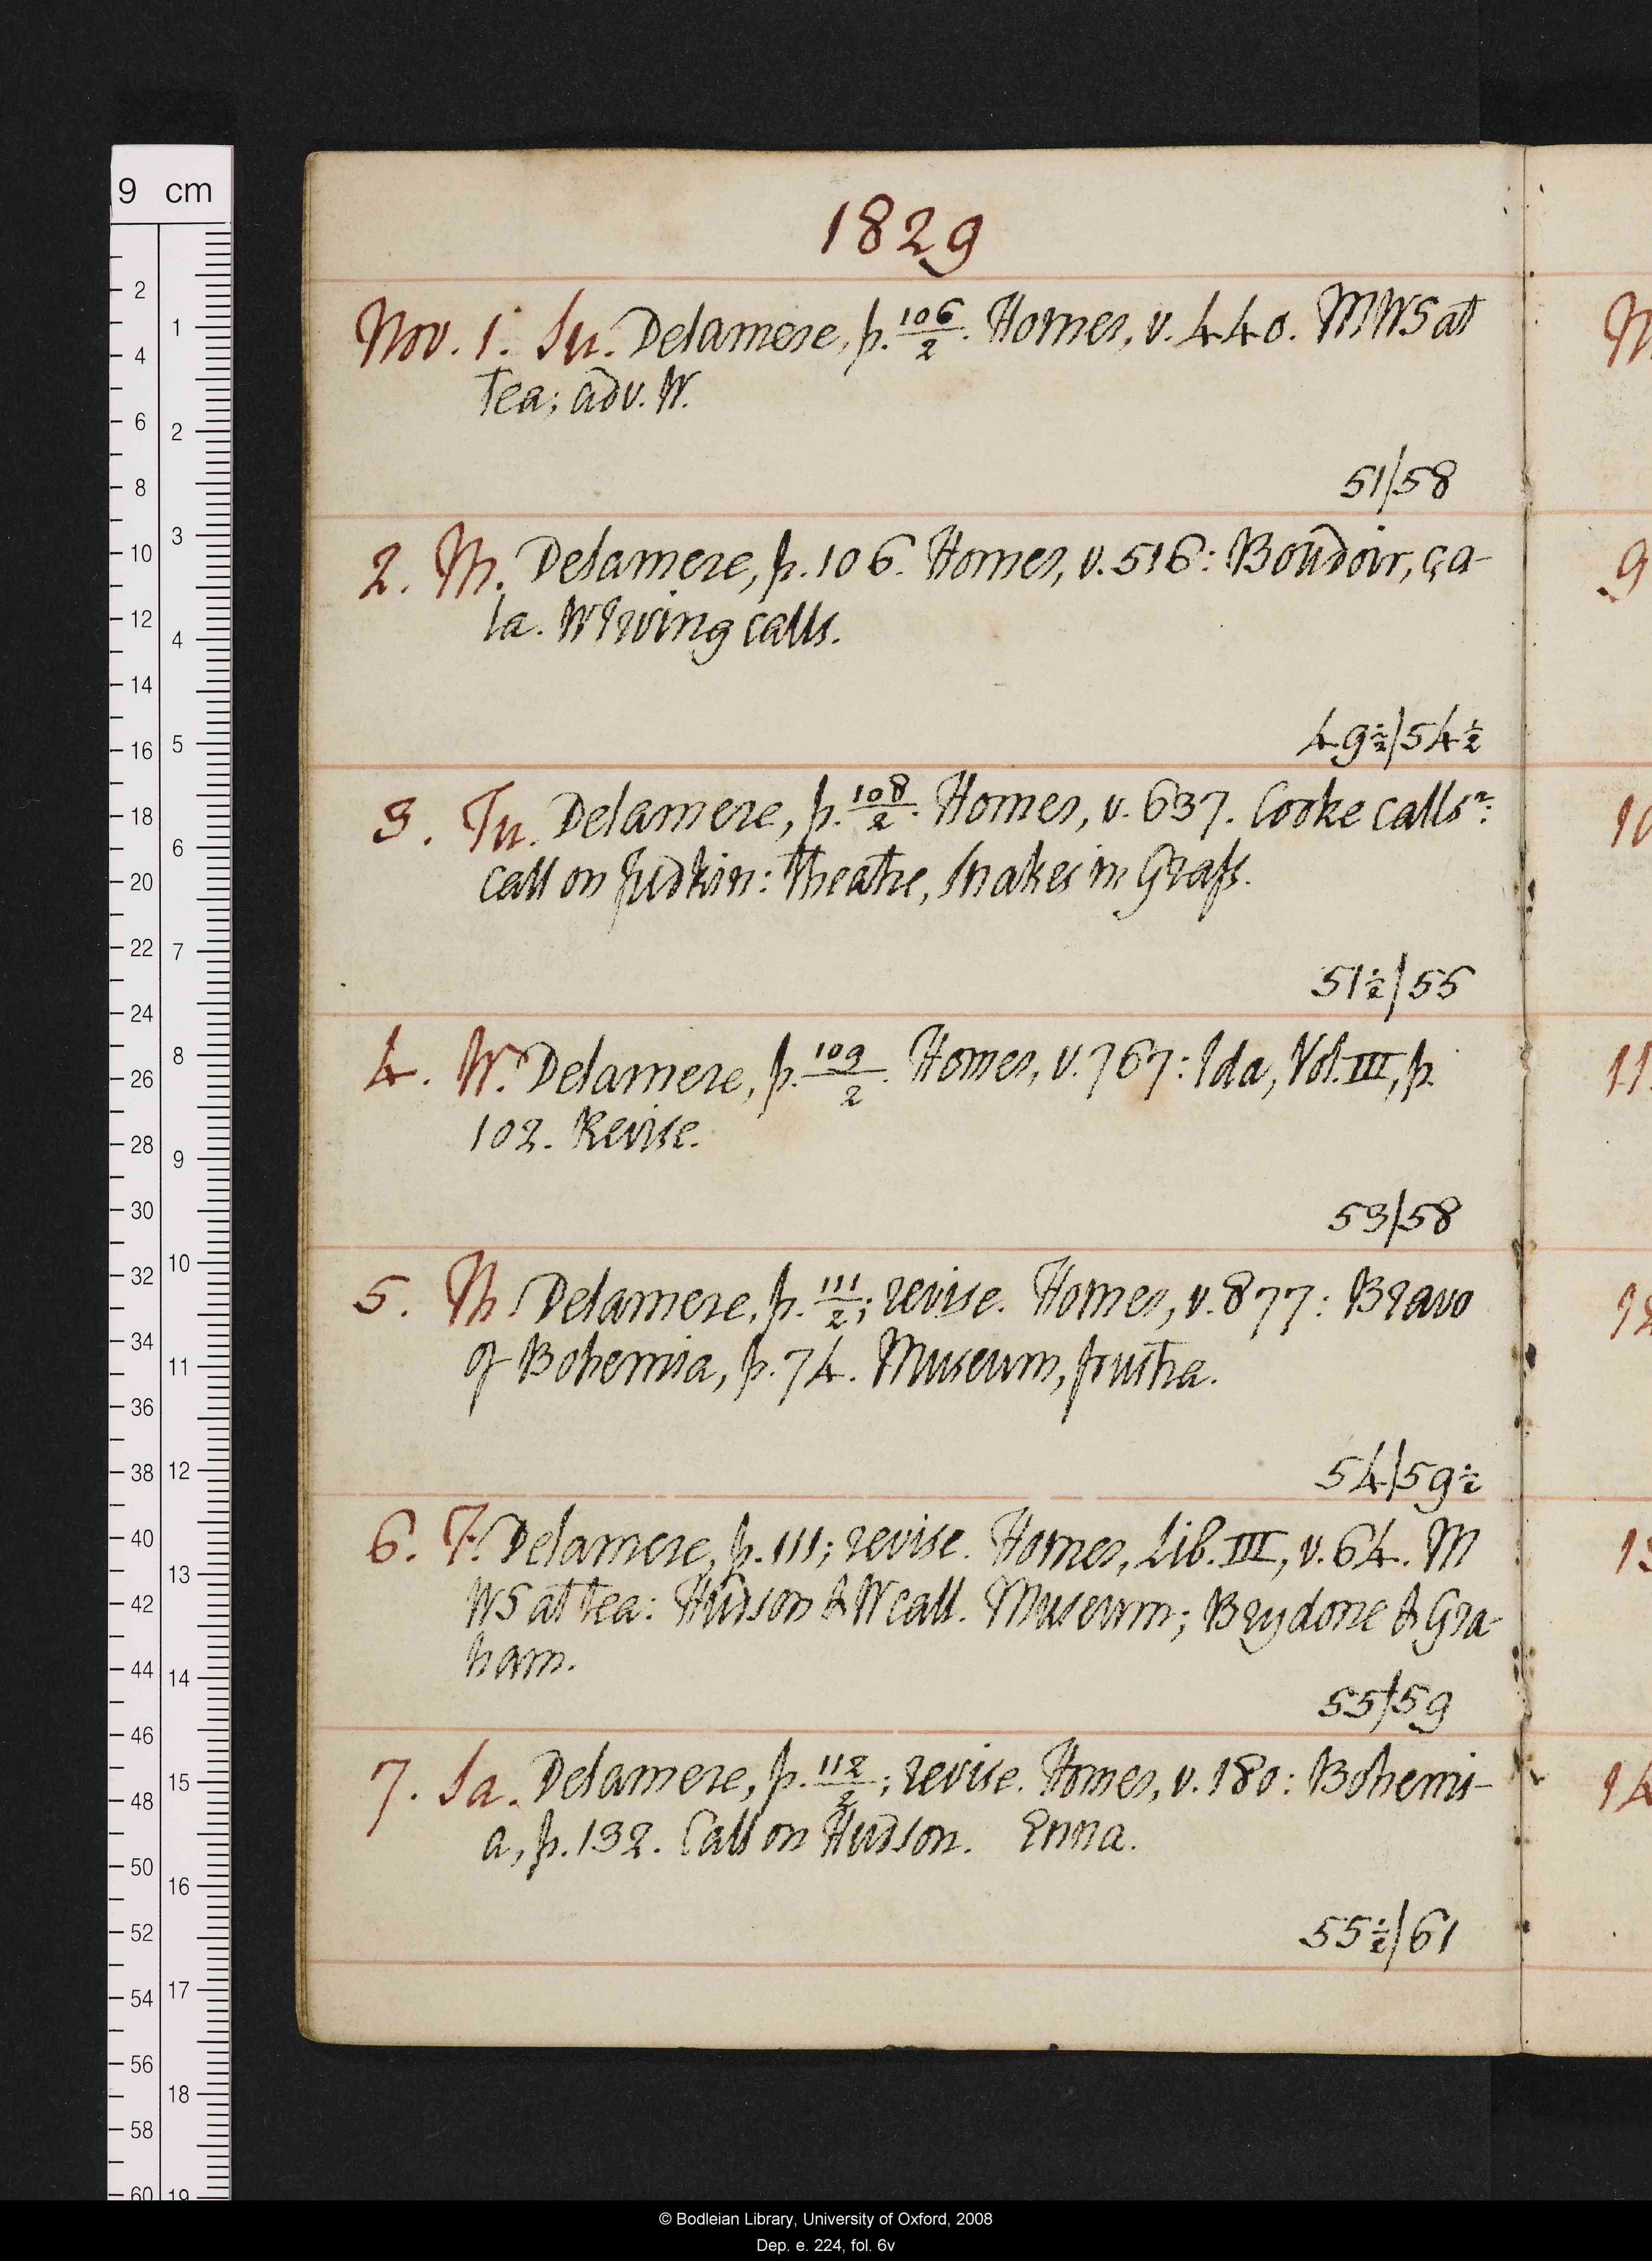 1829
Nov. 1. Su. Delamere, p. 106/2. Homer, v. 440. MWS at
tea; adv. W.
51/58
2. M. Delamere, p. 106. Homer, v. 516: Boudoir, ça-
la. W Irving calls.
49½/54½
3. Tu. Delamere, p. 108/2. Homer, v. 637. Cooke calls:
call on Judkin: theatre, Snakes in Grass.
51½/55
4. W. Delamere, p. 109/2. Homer, v. 767: Ida, Vol. III, p.
102. Revise.
53/58
5. Th. Delamere, p. 111/2; revise. Homer, v. 877: Bravo
of Bohemia, p. 74. Museum, frustra.
54/59½
6. F. Delamere, p. 111; revise. Homer, Lib. III, v. 64. M
WS at tea: Hudson & W call. Museum; Brydone & Gra-
ham.
55/59
7. Sa. Delamere, p. 112/2; revise. Homer, v. 180: Bohemi-
a, p. 132. Call on Hudson. Enna.
55½/61
9 cm
© Bodleian Library, University of Oxford, 2008
Dep. e. 224, fol. 6v